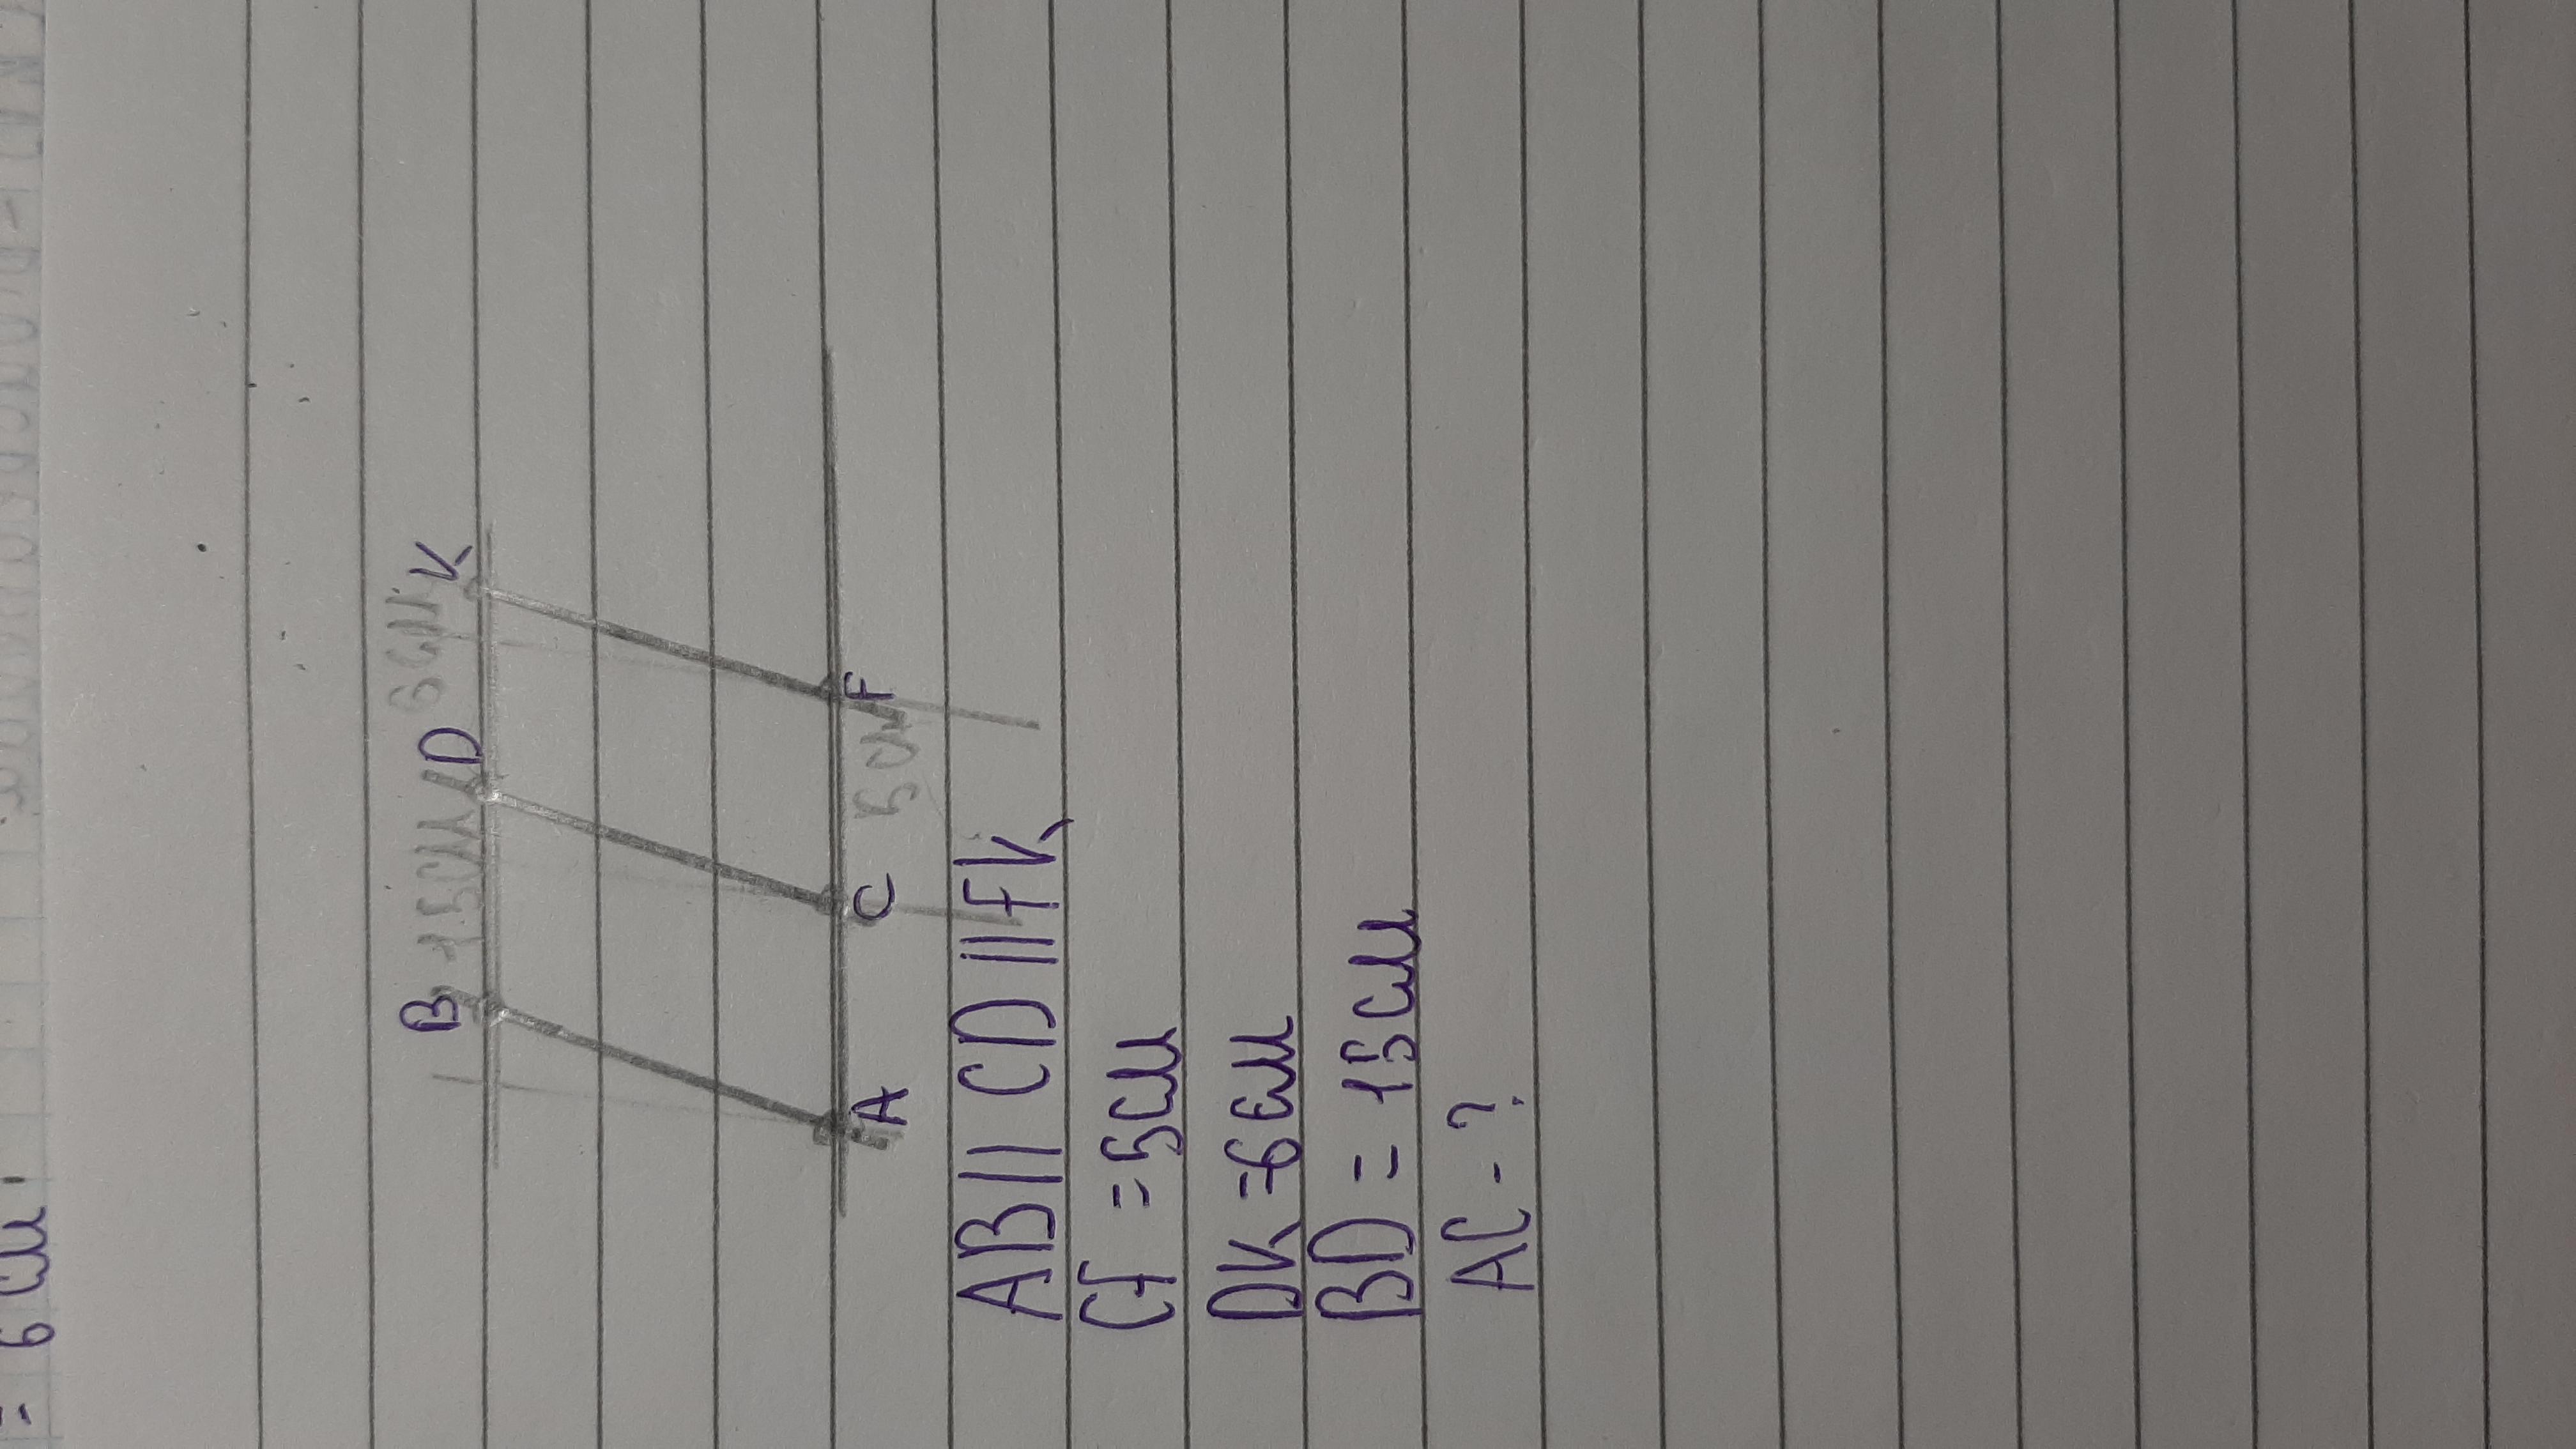 B 15см D 6см K
A C 5см F
AB || CD || FK
CF = 5см
DK = 6см
BD = 15см
AC - ?
= 6 см.